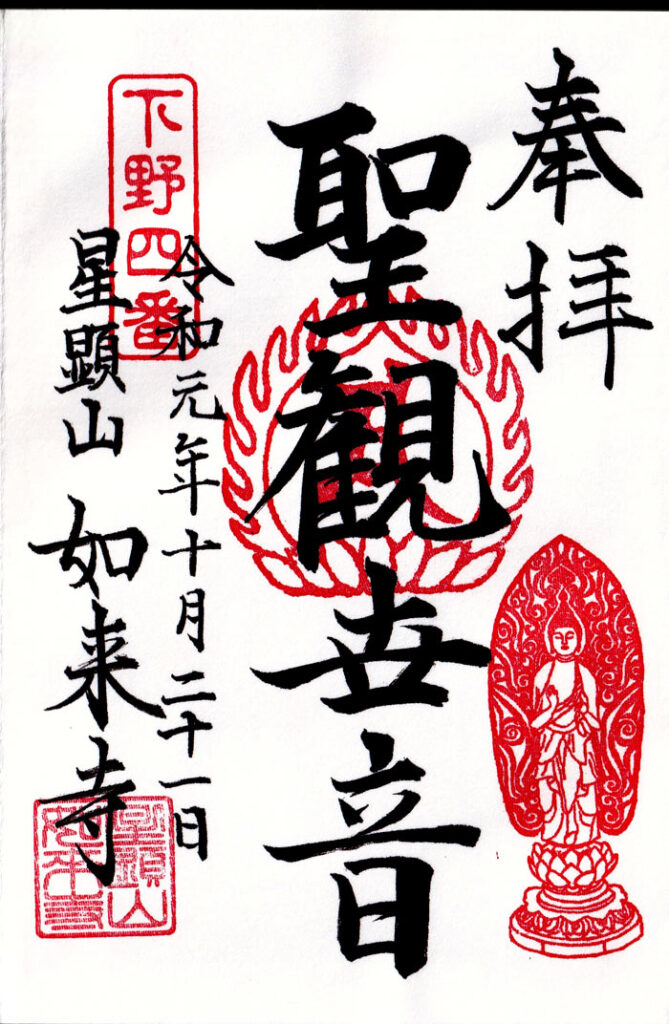 奉拝
聖観世音
令和元年十月二十一日
下野四番
星顕山 如来寺
星顕山
如来寺